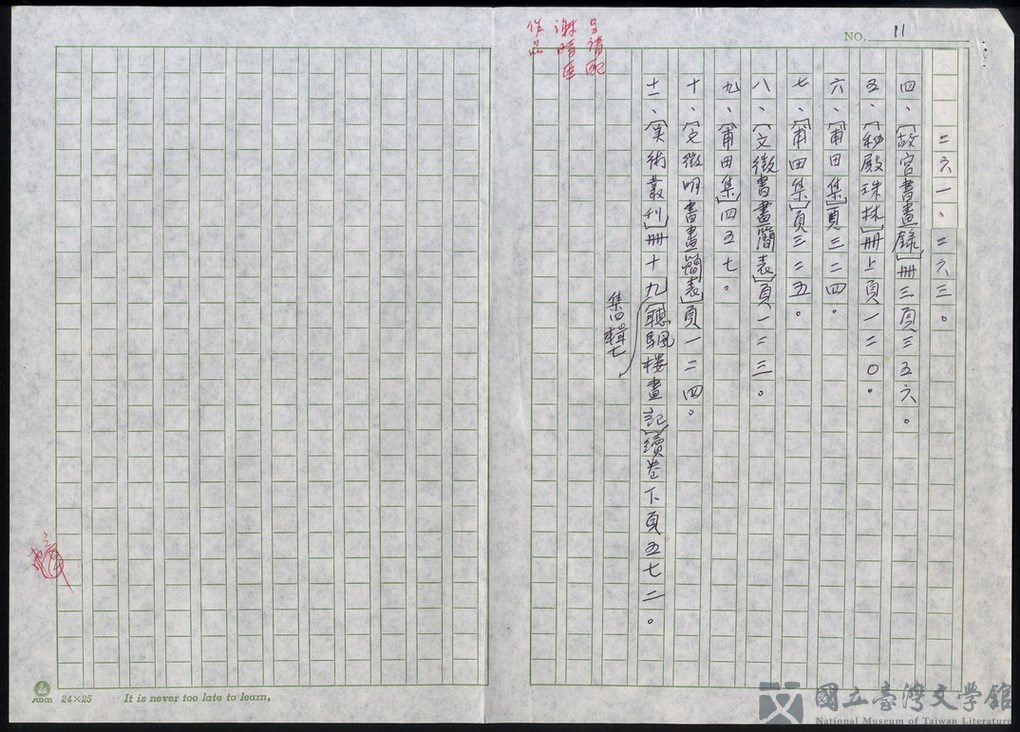 NO. 11
二六一、二六三。
四、〔故宮書畫錄〕冊三頁三五六。
五、〔秘殿珠林〕冊上頁一二〇。
六、〔甫田集〕頁三二四。
七、〔甫田集〕頁三三五。
八、〔文徵書畫簡表〕頁一二三。
九、〔莆田集〕四五七。
十、〔文徵明書畫簡表〕頁一二四。
十一、〔美術叢刊〕冊十九〔聽颿樓畫記〕續卷下頁五七二。
集四輯七
另請配
謝時臣
作品
24×25 It is never too late to learn.
國立臺灣文學館
National Museum of Taiwan Literature